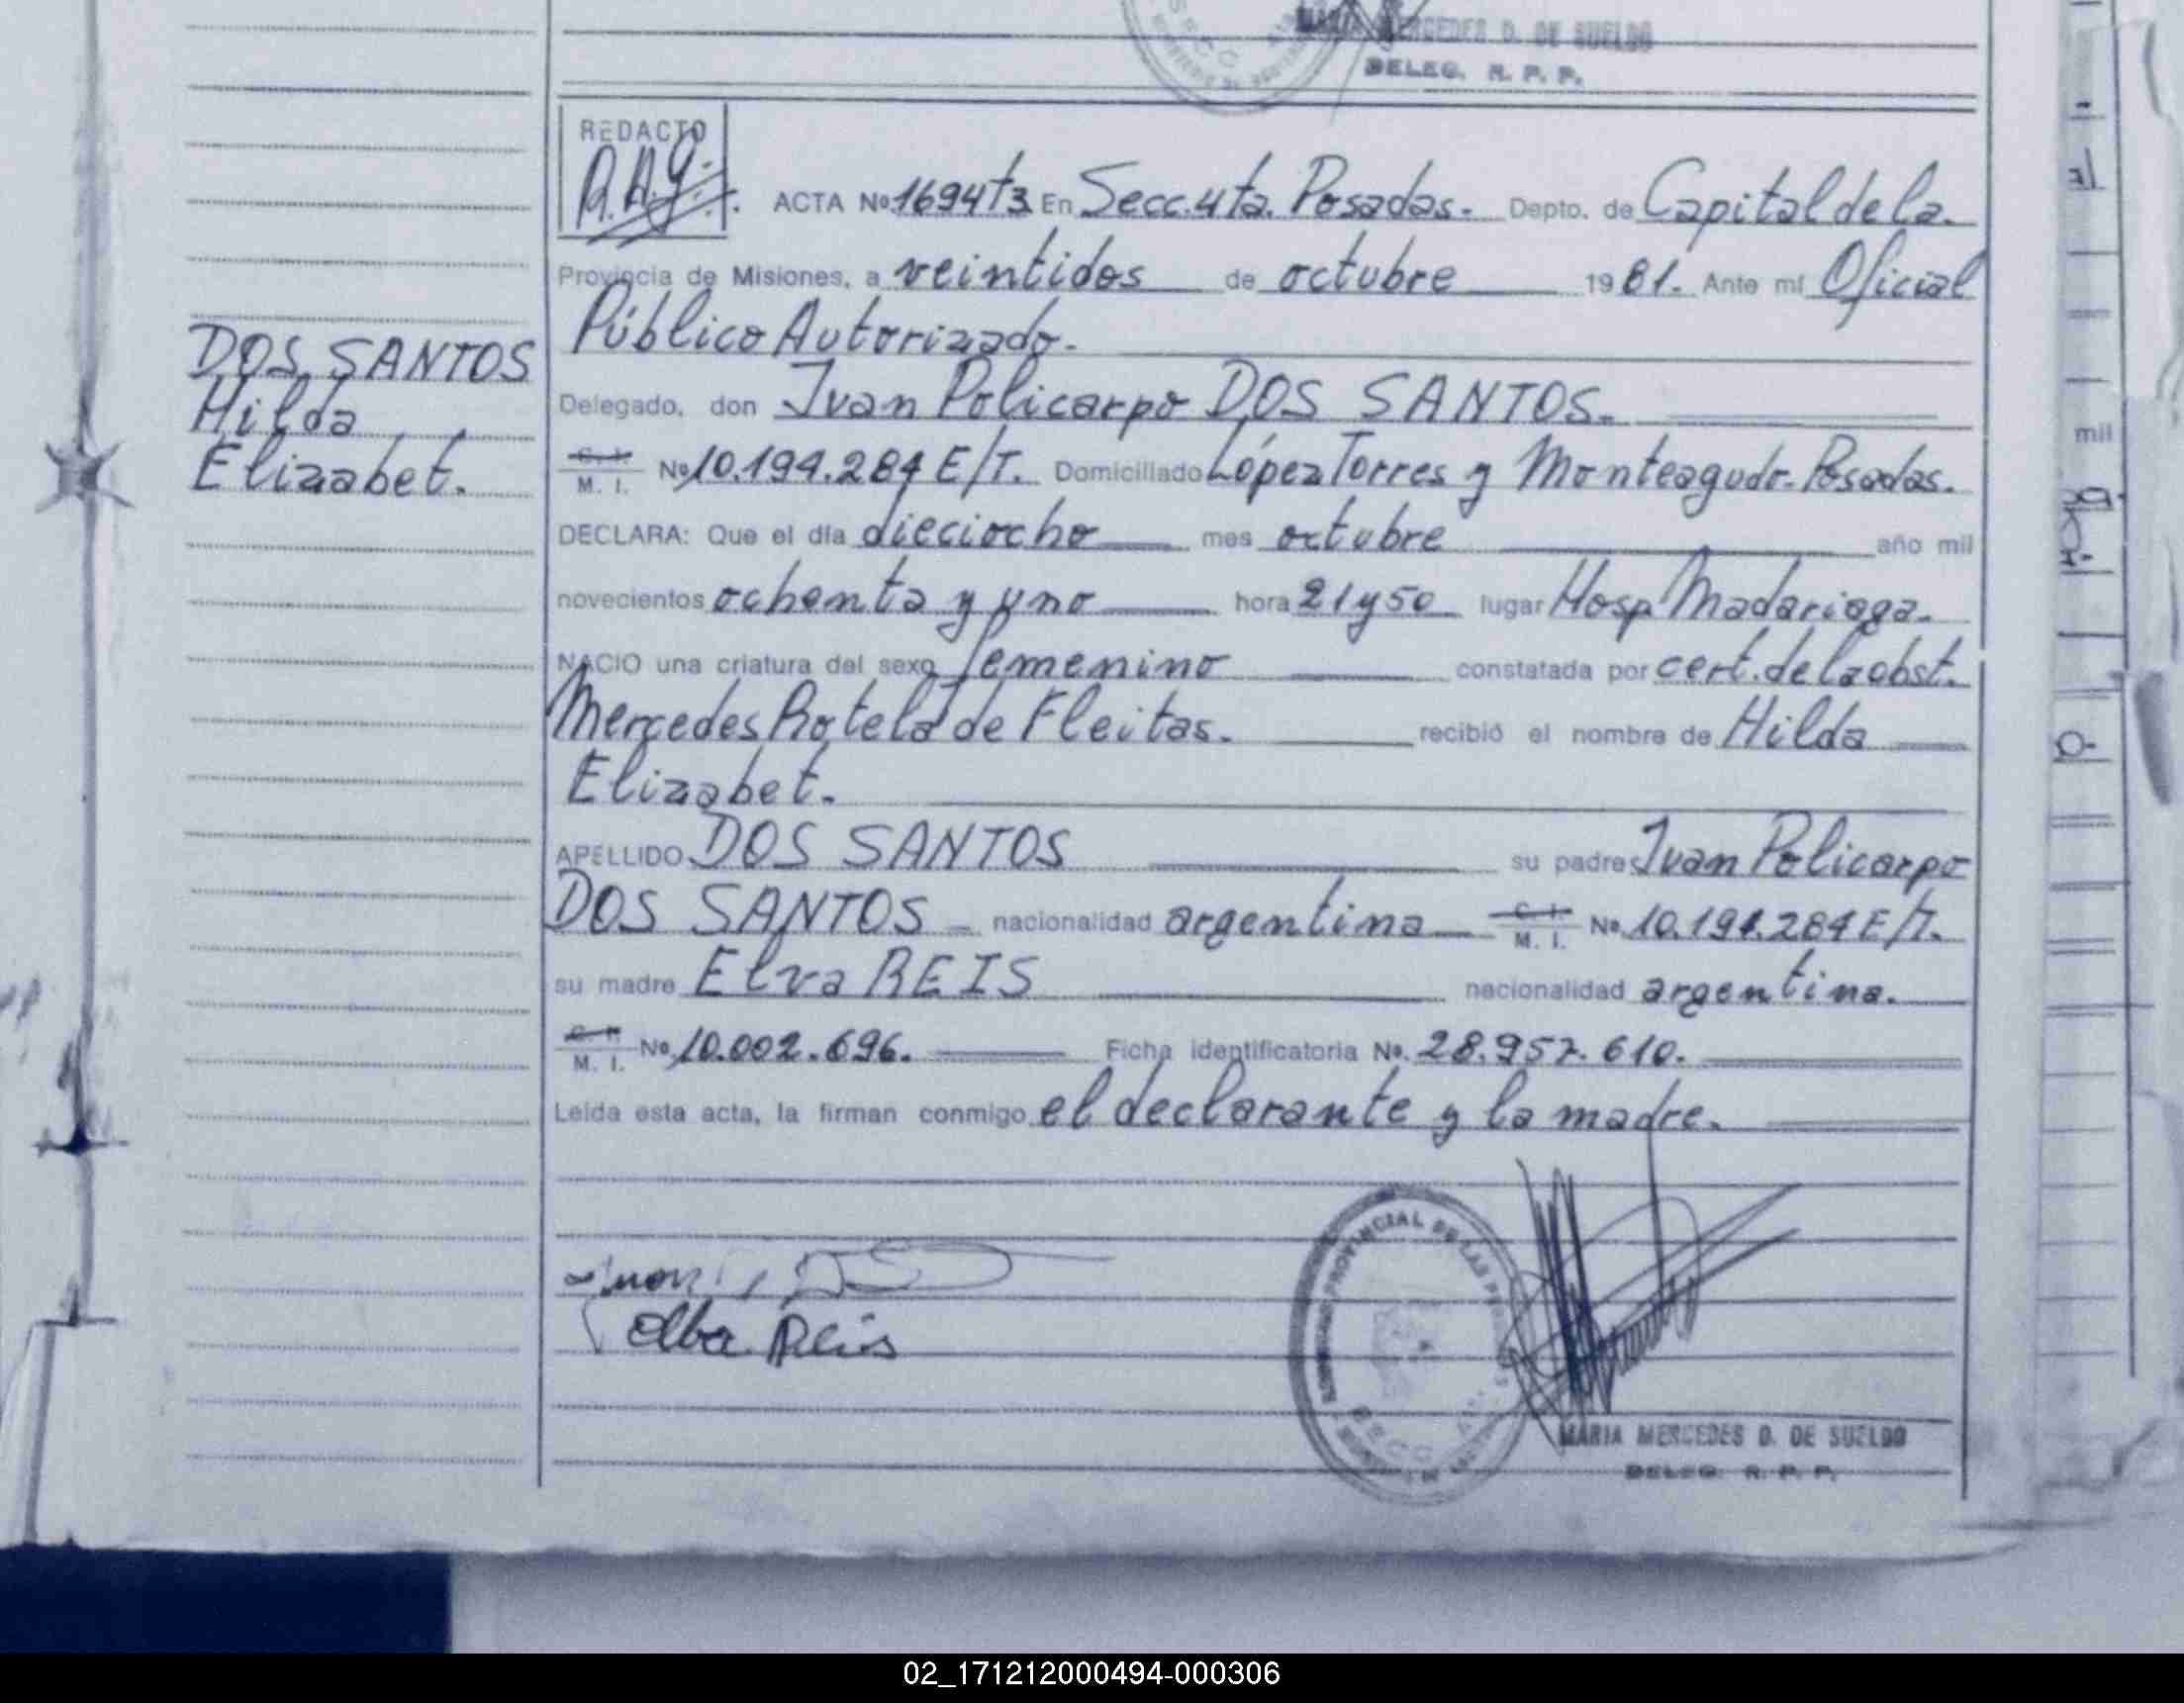 MARIA MERCEDES D. DE SUELDO
DELEG. R. P. P.
REDACTO
R.A.G.
ACTA Nº 1694 T3 En Secc. 4ta. Posadas. Depto. de Capital de la.
Provincia de Misiones, a veintidos de octubre 1981. Ante mí Oficial
Público Autorizado.
DOS SANTOS
Hilda
Elizabet.
Delegado, don Ivan Policarpo DOS SANTOS.
C. I.
M. I. Nº 10.194.284 E/T. Domiciliado López Torres y Monteagudo. Posadas.
DECLARA: Que el día dieciocho mes octubre año mil
novecientos ochenta y uno hora 21 y 50 lugar Hosp Madariaga.
NACIO una criatura del sexo femenino constatada por cert. de la obst.
Mercedes Rotela de Fleitas. recibió el nombre de Hilda
Elizabet.
APELLIDO DOS SANTOS su padre Ivan Policarpo
DOS SANTOS nacionalidad argentina C. I.
M. I. Nº 10.194.284 E/T.
su madre Elva REIS nacionalidad argentina.
C. I.
M. I. Nº 10.002.696. Ficha identificatoria Nº. 28.957.610.
Leída esta acta, la firman conmigo el declarante y la madre.
Elba Reis
PROVINCIAL DE LAS
MARIA MERCEDES D. DE SUELDO
DELEG. R. P. P.
mil
02_171212000494-000306